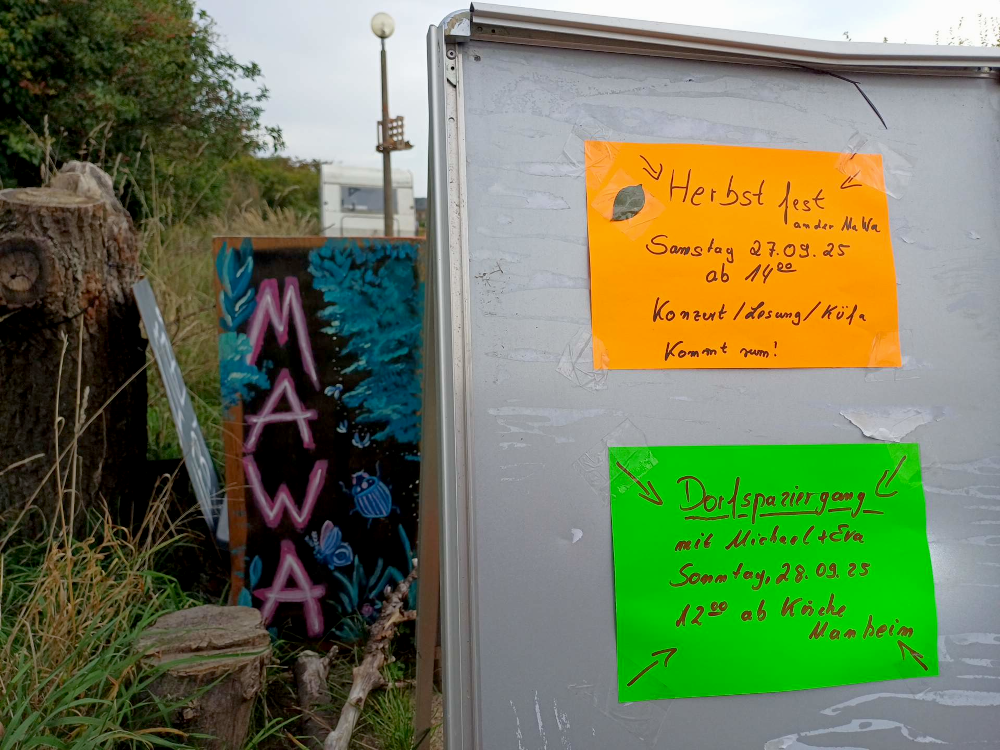 MAWA
Herbstfest
an der MaWa
Samstag 27.09.25
ab 14⁰⁰
Konzert/Lesung/Küfa
Kommt rum!
Dorfspaziergang
mit Michael + Eva
Sonntag, 28.09.25
12⁰⁰ ab Küche
Manheim